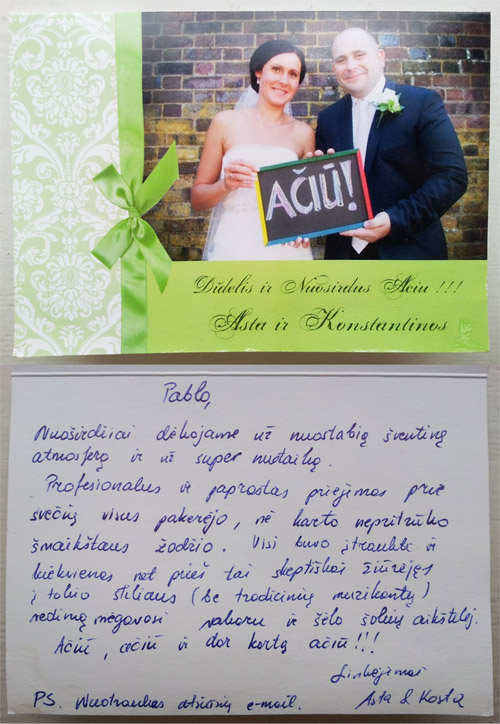 AČIŪ!
Didelis ir Nuoširdus Ačiu !!!
Asta ir Konstantinos
Pablo,
Nuoširdžiai dėkojame už nuostabią šventinę
atmosferą ir už super nuotaiką.
Profesionalus ir paprastas priejimas prie
svečių visus pakerėjo, nė karto nepritrūko
šmaikštaus žodžio. Visi buvo įtraukti ir
kiekvienas net prieš tai skeptiškai žiūrėjęs
į tokio stiliaus (be tradicinių muzikantų)
vedimą mėgavosi vakaru ir šėlo šokių aikštelėj.
Ačiū, ačiū ir dar kartą ačiū!!!
Linkėjimai
Asta & Kosta
PS. Nuotraukas atsiųsiu e-mail.